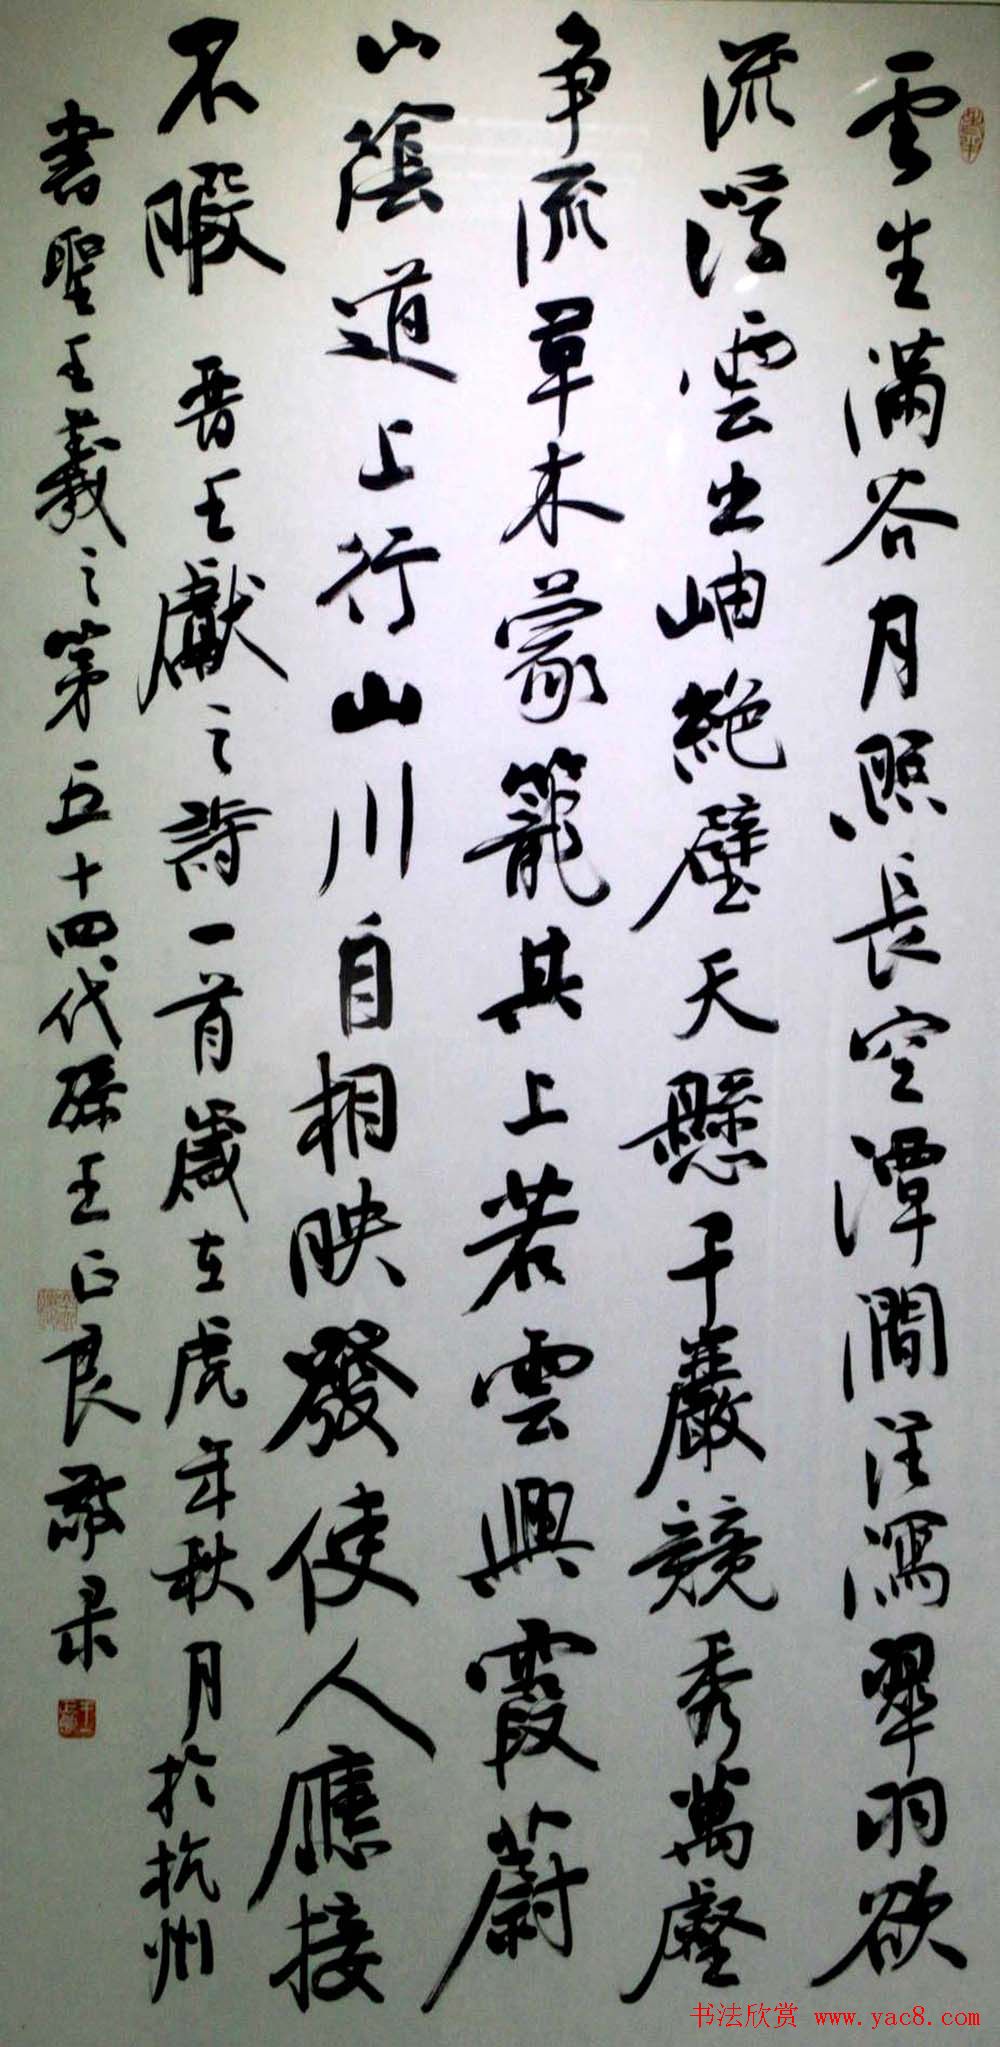 雲生满谷月照長空潭澗注瀉翠羽欲
流浮雲出岫絶壁天懸千巖競秀萬壑
争流草木蒙籠其上若雲興霞蔚
山陰道上行山川自相映發使人應接
不暇 晋王獻之詩一首歲在虎年秋月於杭州
書聖王羲之第五十四代孫王正良敬录
书法欣赏 www.yac8.com